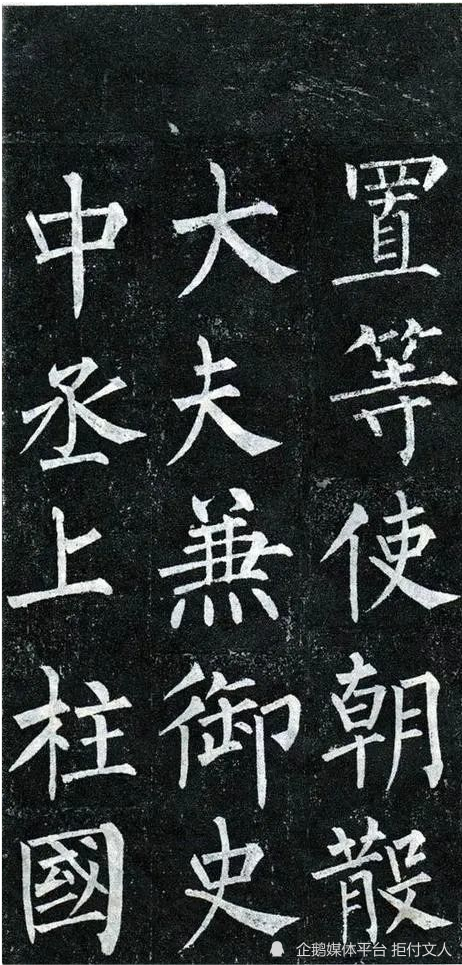 置等使朝散
大夫兼御史
中丞上柱國
企鹅媒体平台 拒付文人